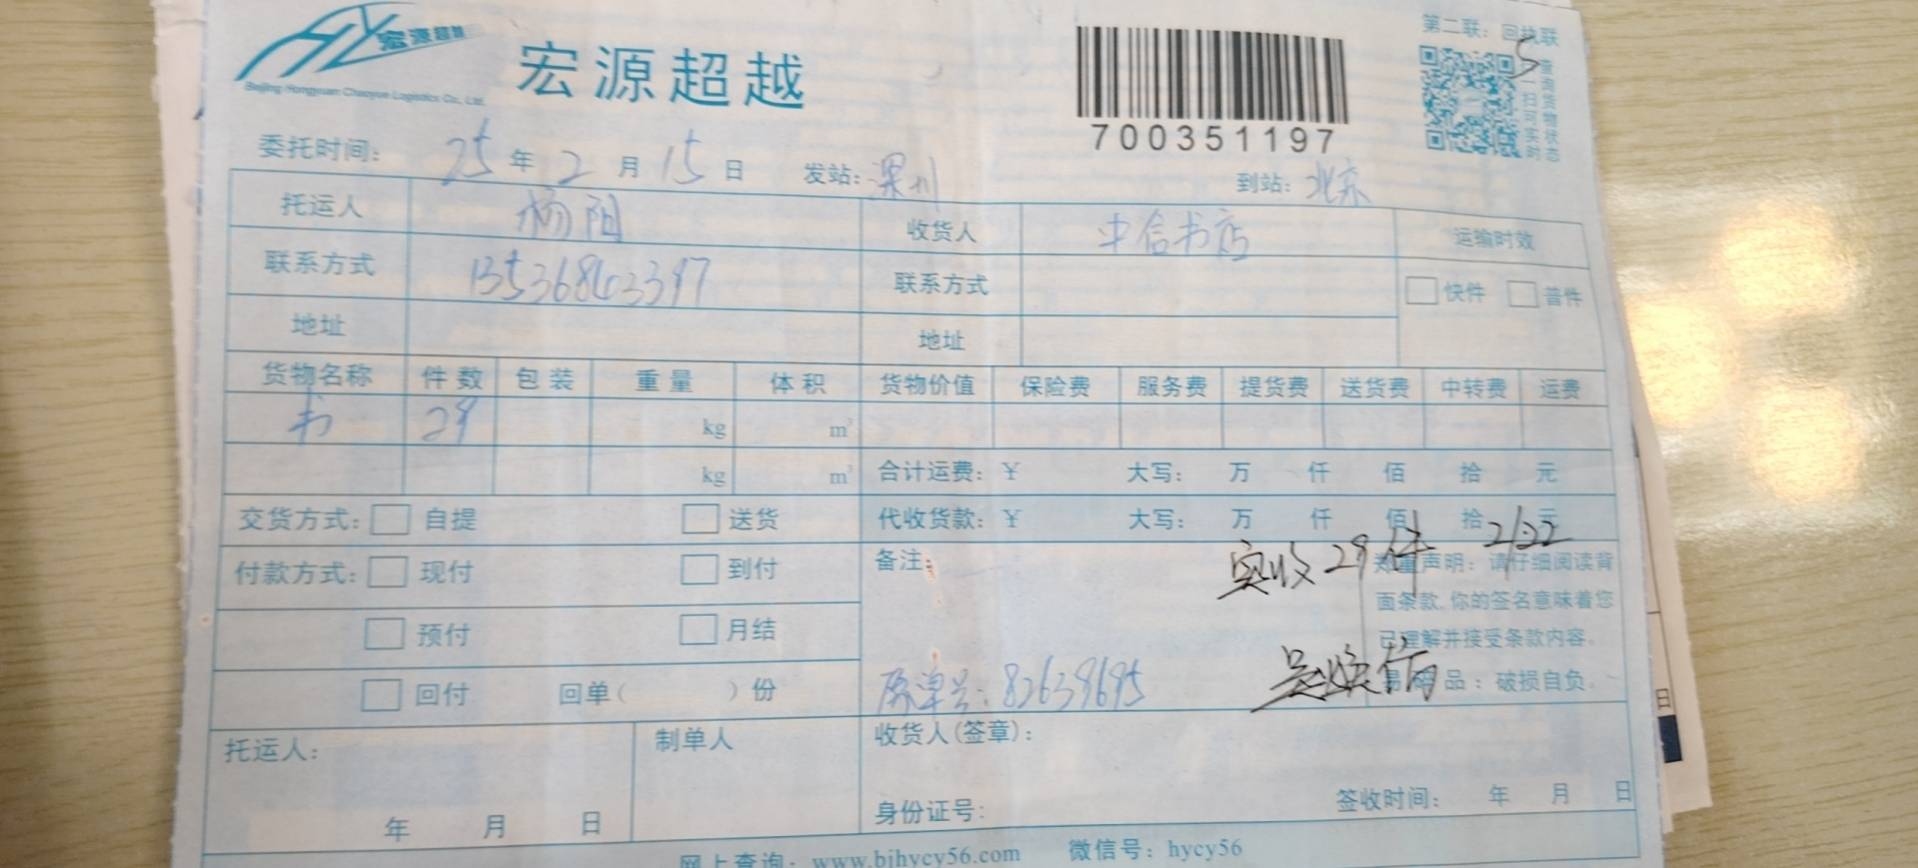 宏源超越
Beijing Hongyuan Chaoyue Logistics Co., Ltd.
宏源超越
700351197
第二联：回执联
扫一扫可实时
查询货物状态
委托时间： 25 年 2 月 15 日 发站：深圳 到站：北京
托运人 杨阳 收货人 中信书店 运输时效
联系方式 联系方式 快件 普件
地址 地址
货物名称 件数 包装 重量 体积 货物价值 保险费 服务费 提货费 送货费 中转费 运费
书 29 kg m³
kg m³ 合计运费：￥ 大写： 万 仟 佰 拾 元
交货方式： 自提 送货 代收货款：￥ 大写： 万 仟 佰 拾 元
付款方式： 现付 到付 备注： 实收29件 2/22
预付 月结
郑重声明：请仔细阅读背
面条款，你的签名意味着您
已理解并接受条款内容。
易碎品：破损自负。
回付 回单（ ）份 原单号：82639695
托运人： 制单人 收货人(签章)：
年 月 日 身份证号： 签收时间： 年 月 日
网上查询：www.bjhycy56.com 微信号：hycy56